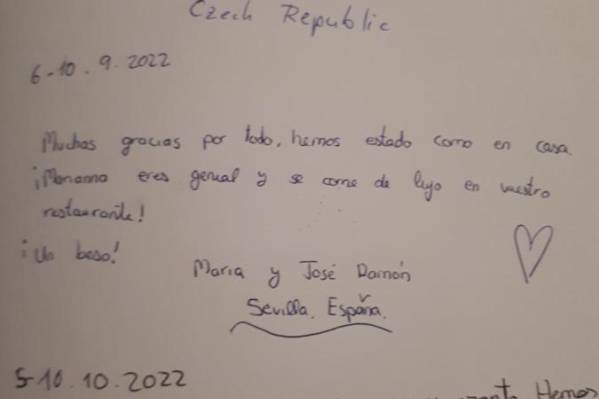 Czech Republic
6-10.9.2022
Muchas gracias por todo, hemos estado como en casa.
¡Monamo eres genial y se come de lujo en vuestro
restaurante!
¡Un beso!
Maria y José Ramón
Sevilla, España.
5-10.10.2022
Hemos